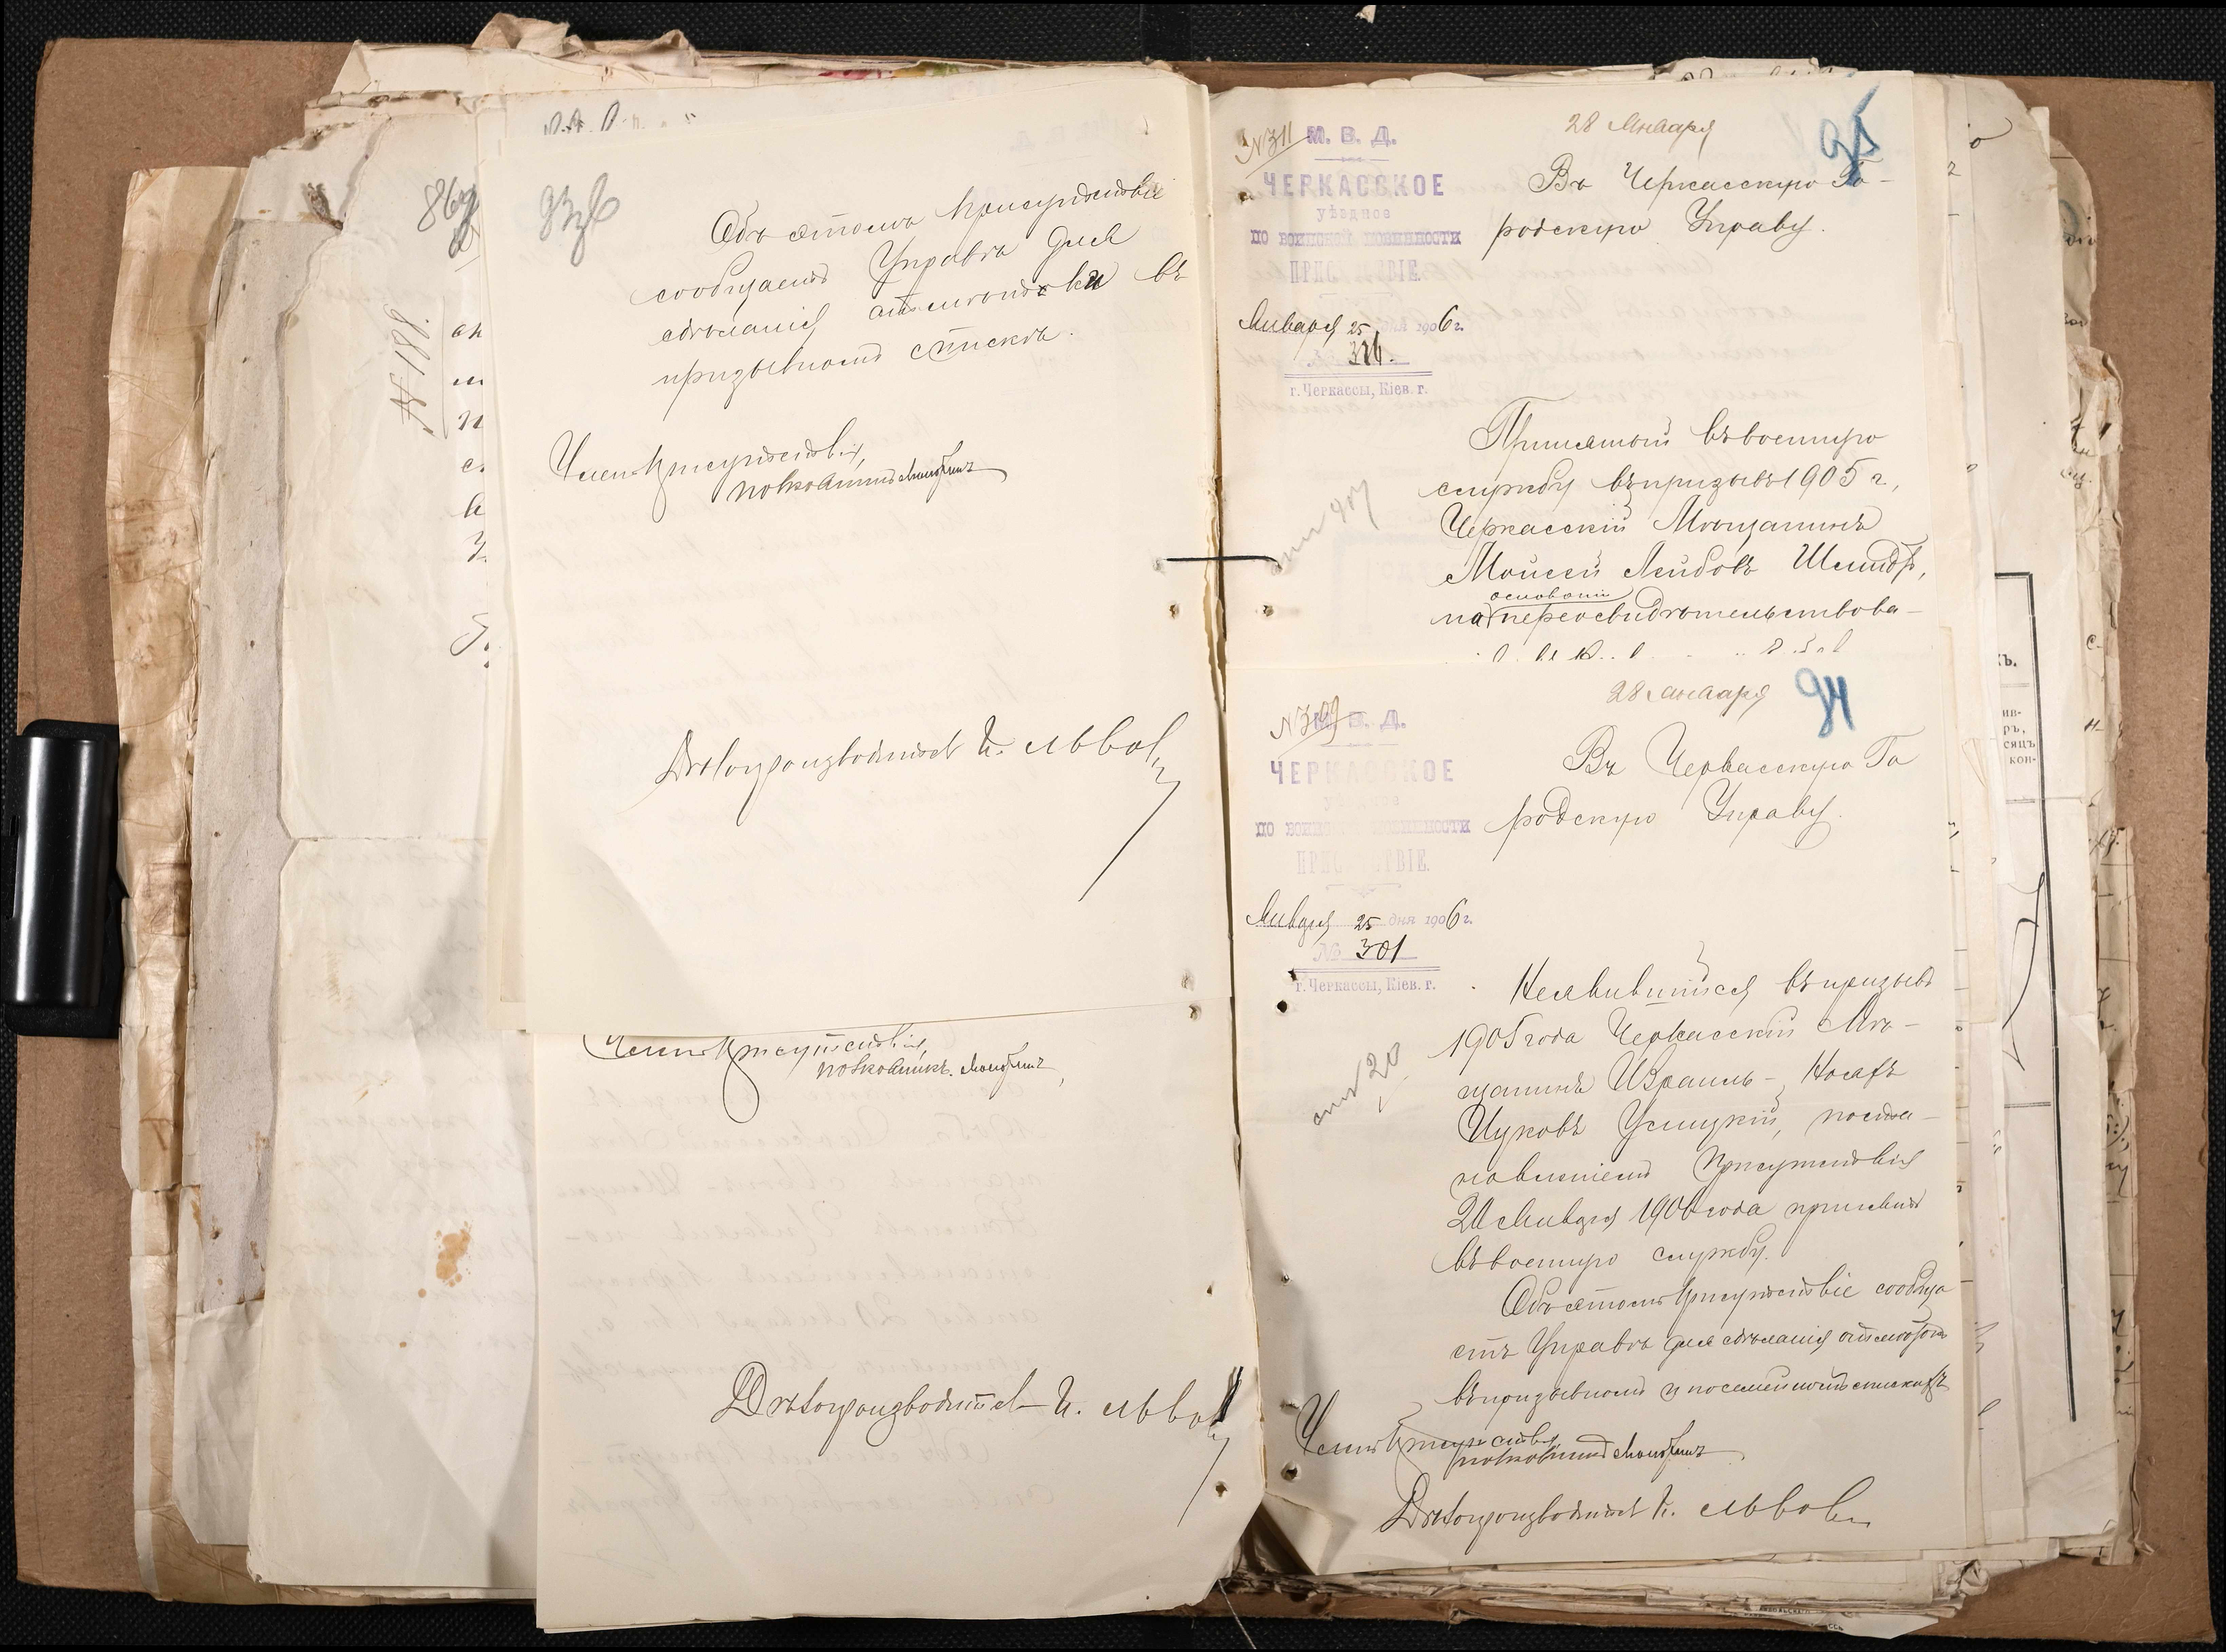 93 об
Объ этомъ Присутствіе
сообщаетъ Управѣ для
сдѣланія отмѣтки въ
призывномъ спискѣ.
Членъ Присутствія,
полковникъ
Дѣлопроизводитель И. Львов
Членъ Присутствія,
полковникъ
Дѣлопроизводитель И. Львов
№ 128
№ 311
М. В. Д.
ЧЕРКАССКОЕ
уѣздное
ПО ВОИНСКОЙ ПОВИННОСТИ
ПРИСУТСТВІЕ.
Января 25 дня 1906 г.
№ 316.
г. Черкассы, Кіев. г.
28 Января
95
Въ Черкасскую Го-
родскую Управу.
Принятый въ военную
службу въ призывъ 1905 г.,
Черкасскій Мѣщанинъ
Мойсей Лейбовъ
основаніи
на переосвидѣтельствова-
№ 309
М. В. Д.
ЧЕРКАССКОЕ
уѣздное
ПО ВОИНСКОЙ ПОВИННОСТИ
ПРИСУТСТВІЕ.
Января 25 дня 1906 г.
№ 301
г. Черкассы, Кіев. г.
28 января
94
Въ Черкасскую Го
родскую Управу.
Неявившійся въ призывъ
1905 года Черкасскій Мѣ-
щанинъ Израиль-
Ицковъ Усицкій, поста-
новленіемъ Присутствія
20 Января 1906 года принятъ
въ военную службу.
Объ этомъ Присутствіе сообща
етъ Управѣ для сдѣланія отмѣтокъ
въ призывномъ и посемейномъ спискахъ
Членъ Присутствія
полковникъ
Дѣлопроизводитель И. Львов